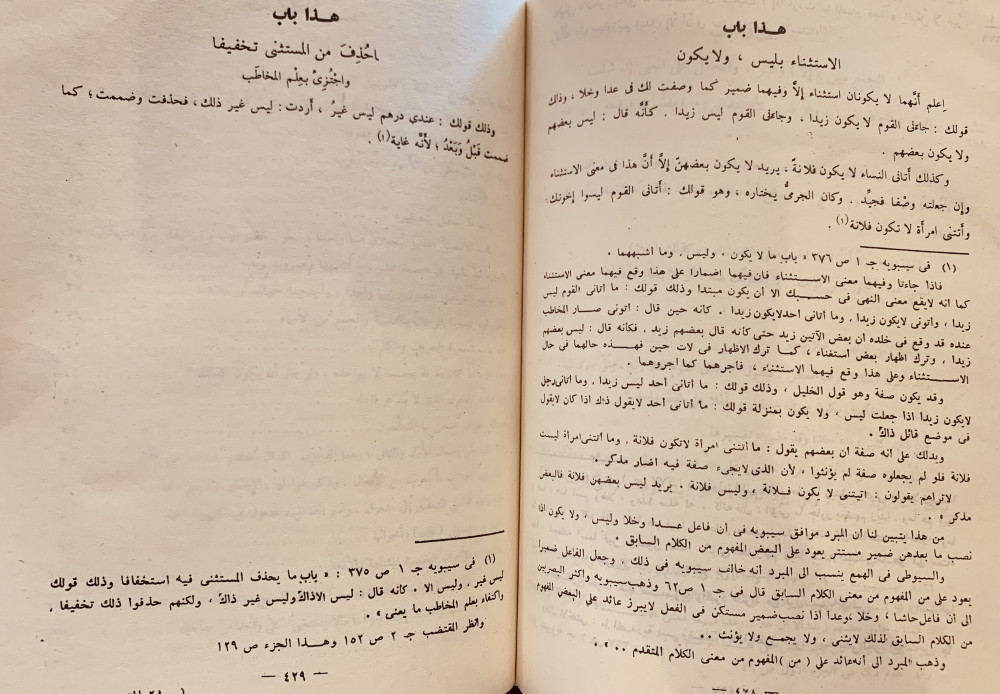 هـذا باب
الاستثناء بليس ، ولا يكون
اعلم أنَّهما لا يكونان استثناء إلاَّ وفيهما ضمير كما وصفت لك فى عدا وخلا ، وذلك
قولك : جاءَنى القوم لا يكون زيدا ، وجاءَنى القوم ليس زيدا . كأَنَّه قال : ليس بعضهم
ولا يكون بعضهم .
وكذلك أَتانى النساء لا يكون فلانةً ، يريد لا يكون بعضهنّ إلاَّ أَنَّ هذا فى معنى الاستثناء
وإن جعلته وصْفا فجيِّد . وكان الجرمىُّ يختاره ، وهو قولك : أَتانى القوم ليسوا إخوتك
وأَتتنى امرأَة لا تكون فلانة(١) .
(١) فى سيبويه جـ ١ ص ٣٧٦ « باب ما لا يكون ، وليس ، وما أشبههما .
فاذا جاءتا وفيهما معنى الاستثناء فان فيهما اضمارا على هذا وقع فيهما معنى الاستثناء
كما انه لايقع معنى النهى فى حسبك الا أن يكون مبتدأ وذلك قولك : ما أتانى القوم ليس
زيدا ، وأتونى لايكون زيدا ، وما أتانى أحد لايكون زيدا . كأنه حين قال : أتونى صار المخاطب
عنده قد وقع فى خلده أن بعض الآتين زيد حتى كأنه قال بعضهم زيد . فكأنه قال : ليس بعضهم
زيدا ، وترك اظهار بعض استغناء ، كما ترك الاظهار فى لات حين فهذه حالهما فى حال
الاستثناء وعلى هذا وقع فيهما الاستثناء ، فأجرهما كما أجروهما .
وقد يكون صفة وهو قول الخليل ، وذلك قولك : ما أتانى أحد ليس زيدا ، وما أتانى رجل
لايكون زيدا اذا جعلت ليس ، ولا يكون بمنزلة قولك : ما أتانى أحد لايقول ذلك اذا كان لايقول
فى موضع قائل ذاك .
ويدلك على انه صفة أن بعضهم يقول : ما أتتنى امرأة لاتكون فلانة ، وما أتتنى امرأة ليست
فلانة فلو لم يجعلوه صفة لم يؤنثوا ، لأن الذى لايجىء صفة فيه اضمار مذكر .
لاتراهم يقولون : اتيتنى لا يكون فلانة ، وليس فلانة . يريد ليس بعضهن فلانة فالبعض
مذكر » .
من هذا يتبين لنا أن المبرد موافق سيبويه فى أن فاعل عدا وخلا وليس ، ولا يكون اذا
نصب ما بعدهن ضمير مستتر يعود على البعض المفهوم من الكلام السابق .
والسيوطى فى الهمع ينسب الى المبرد أنه خالف سيبويه فى ذلك ، وجعل الفاعل ضميرا
يعود على من المفهوم من معنى الكلام السابق قال فى جـ ١ ص ٦٢ وذهب سيبويه وأكثر البصريين
الى أن فاعل حاشا ، وخلا ، وعدا اذا نصب ضمير مستكن فى الفعل لايبرز عائد على البعض المفهوم
من الكلام السابق لذلك لايثنى ، ولا يجمع ولا يؤنث ..
وذهب المبرد الى أنه عائد على ( من ) المفهوم من معنى الكلام المتقدم .. » .
— ٤٢٨ —
هـذا باب
ما حُذِفَ من المستثنى تخفيفا
واجْتُزِئَ بعلْم المخاطَب
وذلك قولك : عندى درهم ليس غيرُ ، أَردت : ليس غير ذلك ، فحذفت وضممت ؛ كما
ضممت قَبْلُ وبَعْدُ ؛ لأَنَّه غاية(١) .
(١) فى سيبويه جـ ١ ص ٣٧٥ : « باب ما يحذف المستثنى فيه استخفافا وذلك قولك
ليس غير ، وليس الا . كأنه قال : ليس الاذاك وليس غير ذاك ، ولكنهم حذفوا ذلك تخفيفا ،
واكتفاء بعلم المخاطب ما يعنى » .
وانظر المقتضب جـ ٢ ص ١٥٢ وهذا الجزء ص ١٢٩
— ٤٢٩ —